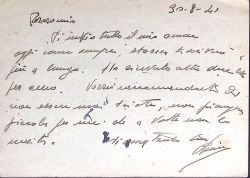 30-8-41
Ti invio tutto il mio amore
oggi come sempre; stasera ti scriverò
più a lungo. Ho ricevuto altre due lettere
per aereo. Vorrei raccomandarti di
non essere mai triste, non piangere
piccola per me che a volte non lo
merito.